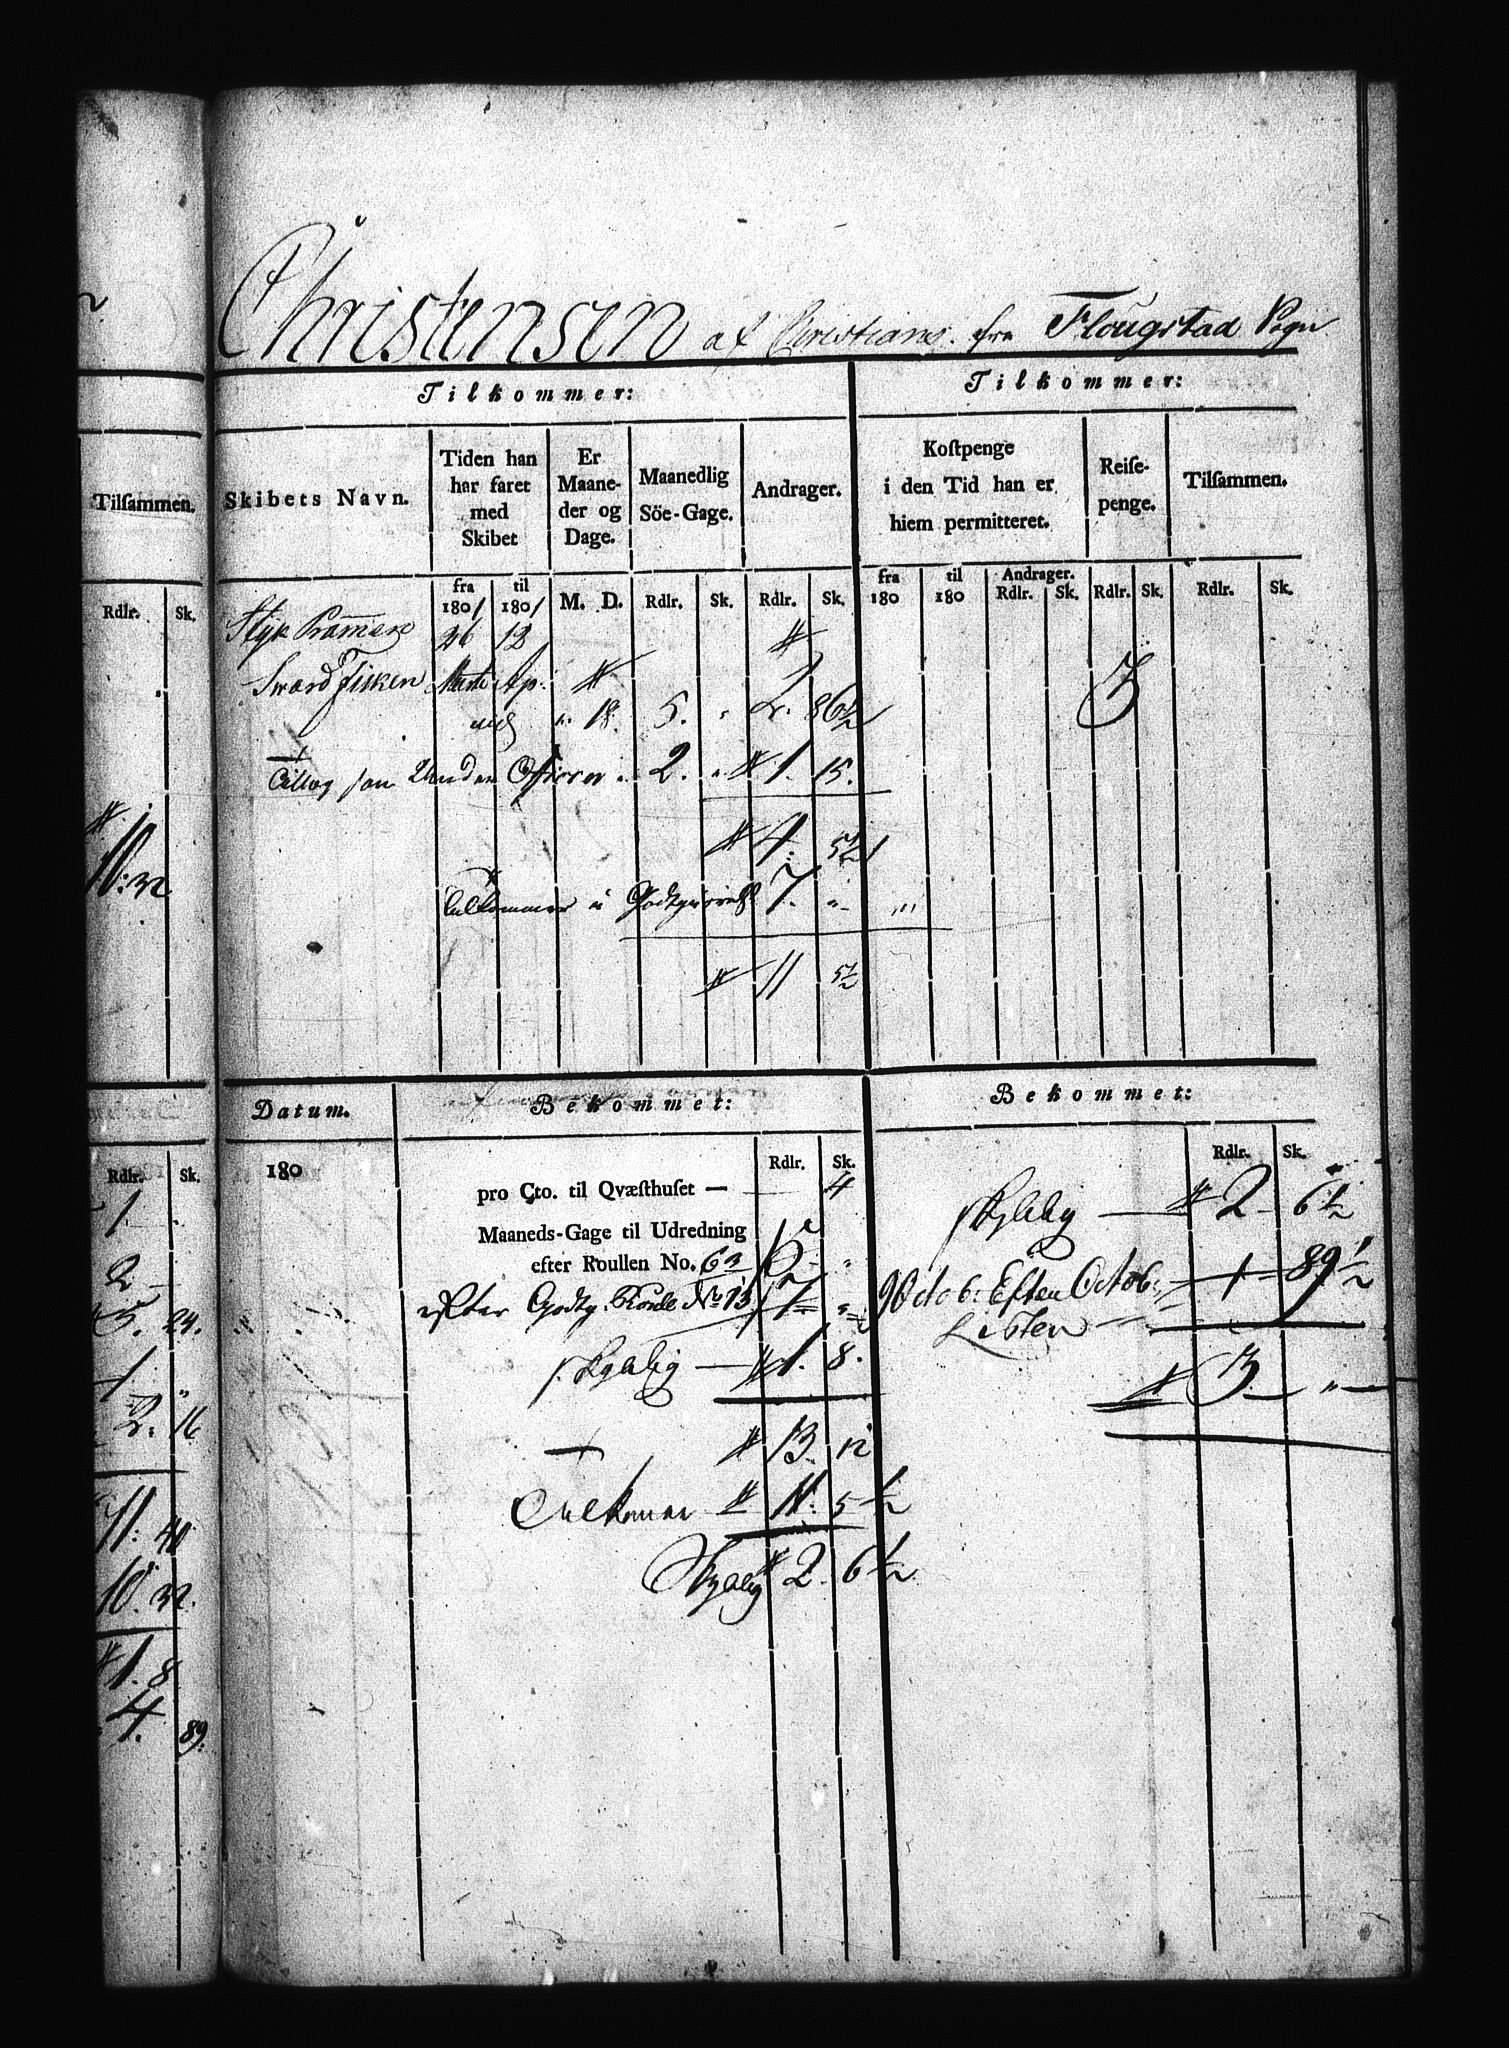 Christensen af Christians. fra Flougstad Sogn
Tilkommer:
Tilkommer:
Tilsammen.
Skibets Navn.
Tiden han har faret med Skibet
Er Maaneder og Dage.
Maanedlig Söe-Gage.
Andrager.
Kostpenge i den Tid han er hiem permitteret.
Reisepenge.
Tilsammen.
Rdlr. Sk.
fra 1801 til 1801 M. D. Rdlr. Sk. Rdlr. Sk. fra 180 til 180 Andrager. Rdlr. Sk. Rdlr. Sk. Rdlr. Sk.
Styk Prammen 26 12
Sværd Fisken Marti Ap: 3
incl " 18. 5. " 2. 86½
Tillæg som Under Officier " 2. " 1. 15.
4. 5½
10: 32
Tilkommer i Godtgiörelse 7. "
11 5½
Datum.
Bekommet:
Bekommet:
Rdlr. Sk.
180
Rdlr. Sk.
Rdlr. Sk.
pro Cto. til Qvæsthuset — 4
Maaneds-Gage til Udredning
efter Roullen No. 63 5 "
efter Godtg. Roulle No 13 7 "
skyldig 1. 8.
13. 12
Tilkommer 11. 5½
Skyldig 2. 6½
skyldig 2 6½
9 Octob: Efter Octob: 1 89½
Listen
3. "
1.
2
5. 24.
1 "
2. 16
11: 40
10. 32.
1. 8
4. 89.